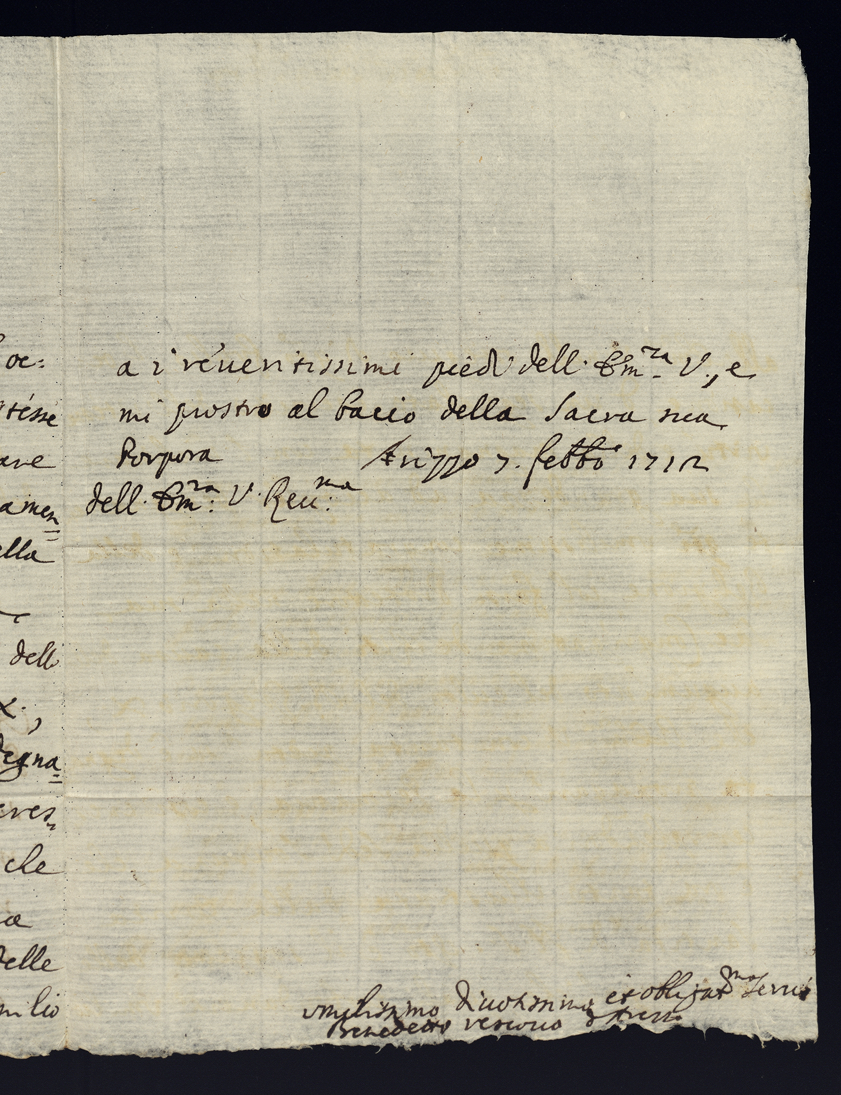 oe:
tesse
are
amen=
ella
dell
x.,
degna=
eres=
che
a
delle
milio
a i reuerentissimi piedi dell. Em:za V., e
mi prostro al bacio della Sacra sua
Porpora Arezzo 7. febbo 1712
dell. Em:za V. Reu:ma
vmilissimo diuotissimo et obligatmo Seruo
Benedetto vescouo d Arezzo